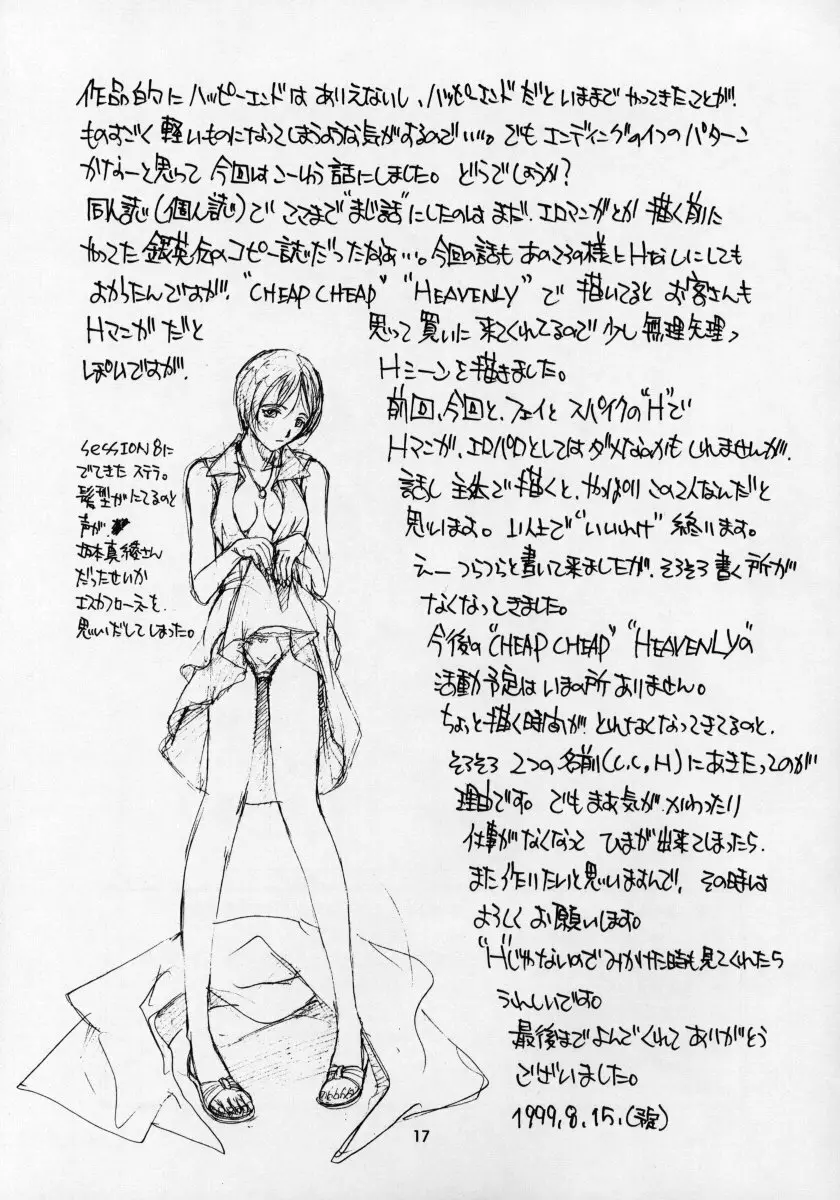 作品的にハッピーエンドはありえないし、ハッピーエンドだといままでやってきたことが、
ものすごく軽いものになってしまうような気がするので…。でもエンディングの1つのパターン
かなぁーと思って今回はこーゆう話にしました。どうでしょうか?
同人誌(個人誌)でここまで"まじ話"にしたのはまだ、エロマンガとか描く前に
やってた銀英伝のコピー誌だったなぁ…。今回の話もあのころの様にHなしにしても
よかったんですが、"CHEAP CHEAP" "HEAVENLY"で描いてると お客さんも
Hマンガだと思って買いに来てくれてるので少し無理矢理っ
ぽいですが、Hシーンを描きました。
前回、今回と、フェイとスパイクの"H"で
Hマンガ、エロパロとしてはダメなのかもしれませんが、
話し主体で描くと、やっぱりこの2人なんだと
思います。以上で"いいわけ"終ります。
えーつらつらと書いて来ましたが、そろそろ書く所が
なくなってきました。
今後の"CHEAP CHEAP" "HEAVENLY"の
活動予定はいまの所ありません。
ちょっと描く時間がとれなくなってきてるのと、
そろそろ2つの名前(C.C,H)にあきたってのが
理由です。でもまあ気がかわったり
仕事がなくなって ひまが出来てしまったら、
また作りたいと思いますんで、その時は
よろしくお願いします。
"H"じゃないのでみかけた時も見てくれたら
うれしいです。
最後までよんでくれてありがとう
ございました。
1999.8.15.
SESSION8に
でてきたステラ。
髪型がにてるのと
声が
坂本真綾さん
だったせいか
エスカフローネを
思いだしてしまった。
17